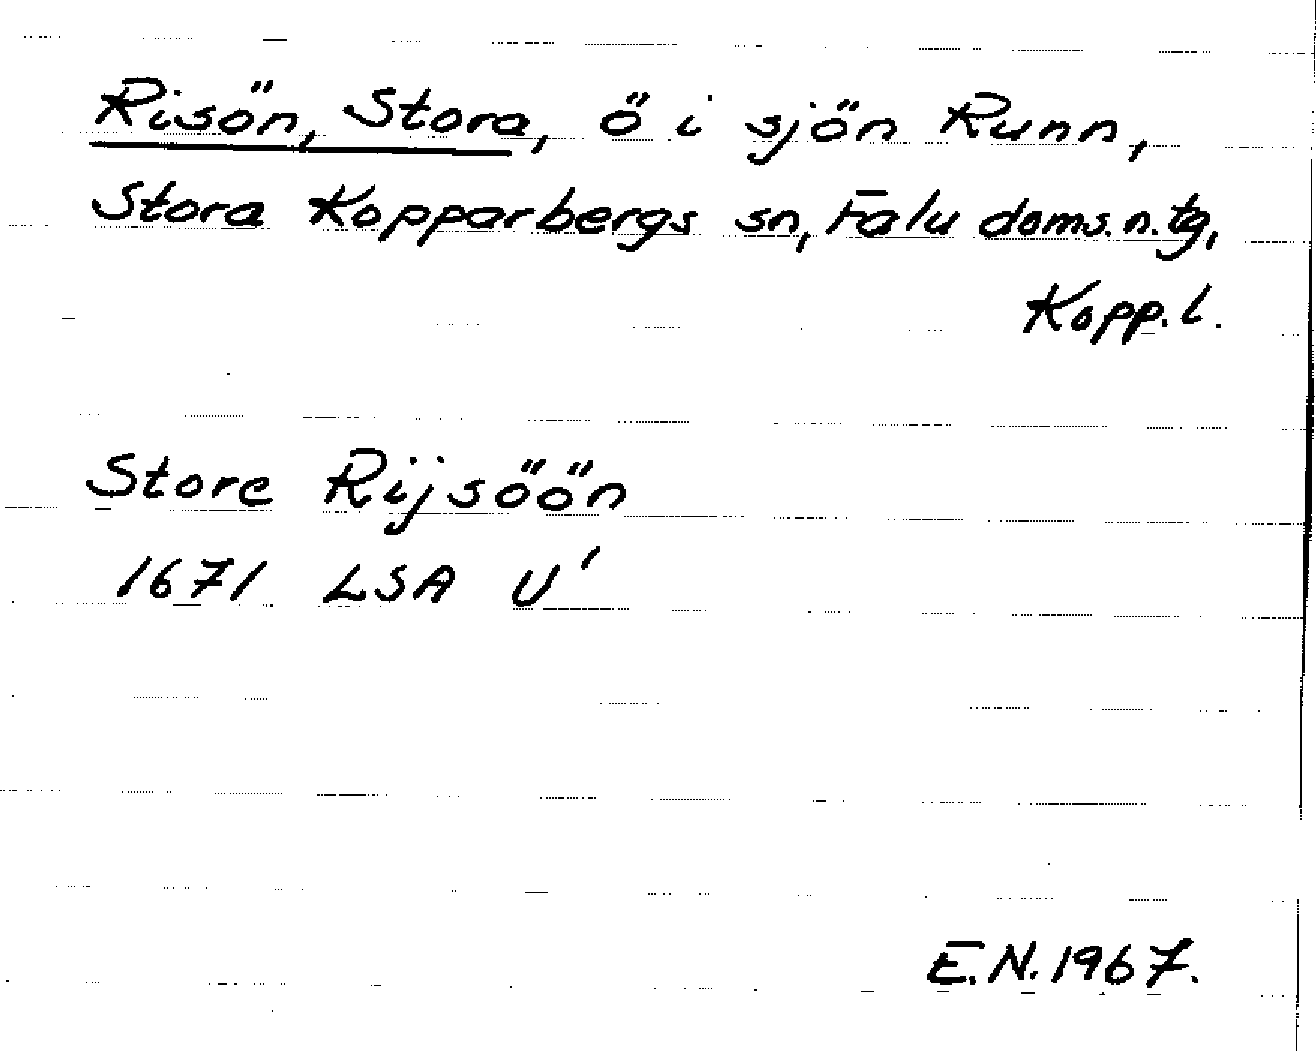 Risön, Stora, ö i sjön Runn,
Stora Kopparbergs sn, Falu doms.n.tg,
Kopp.l.
Store Rijsöön
1671 LSA U'
E.N. 1967.